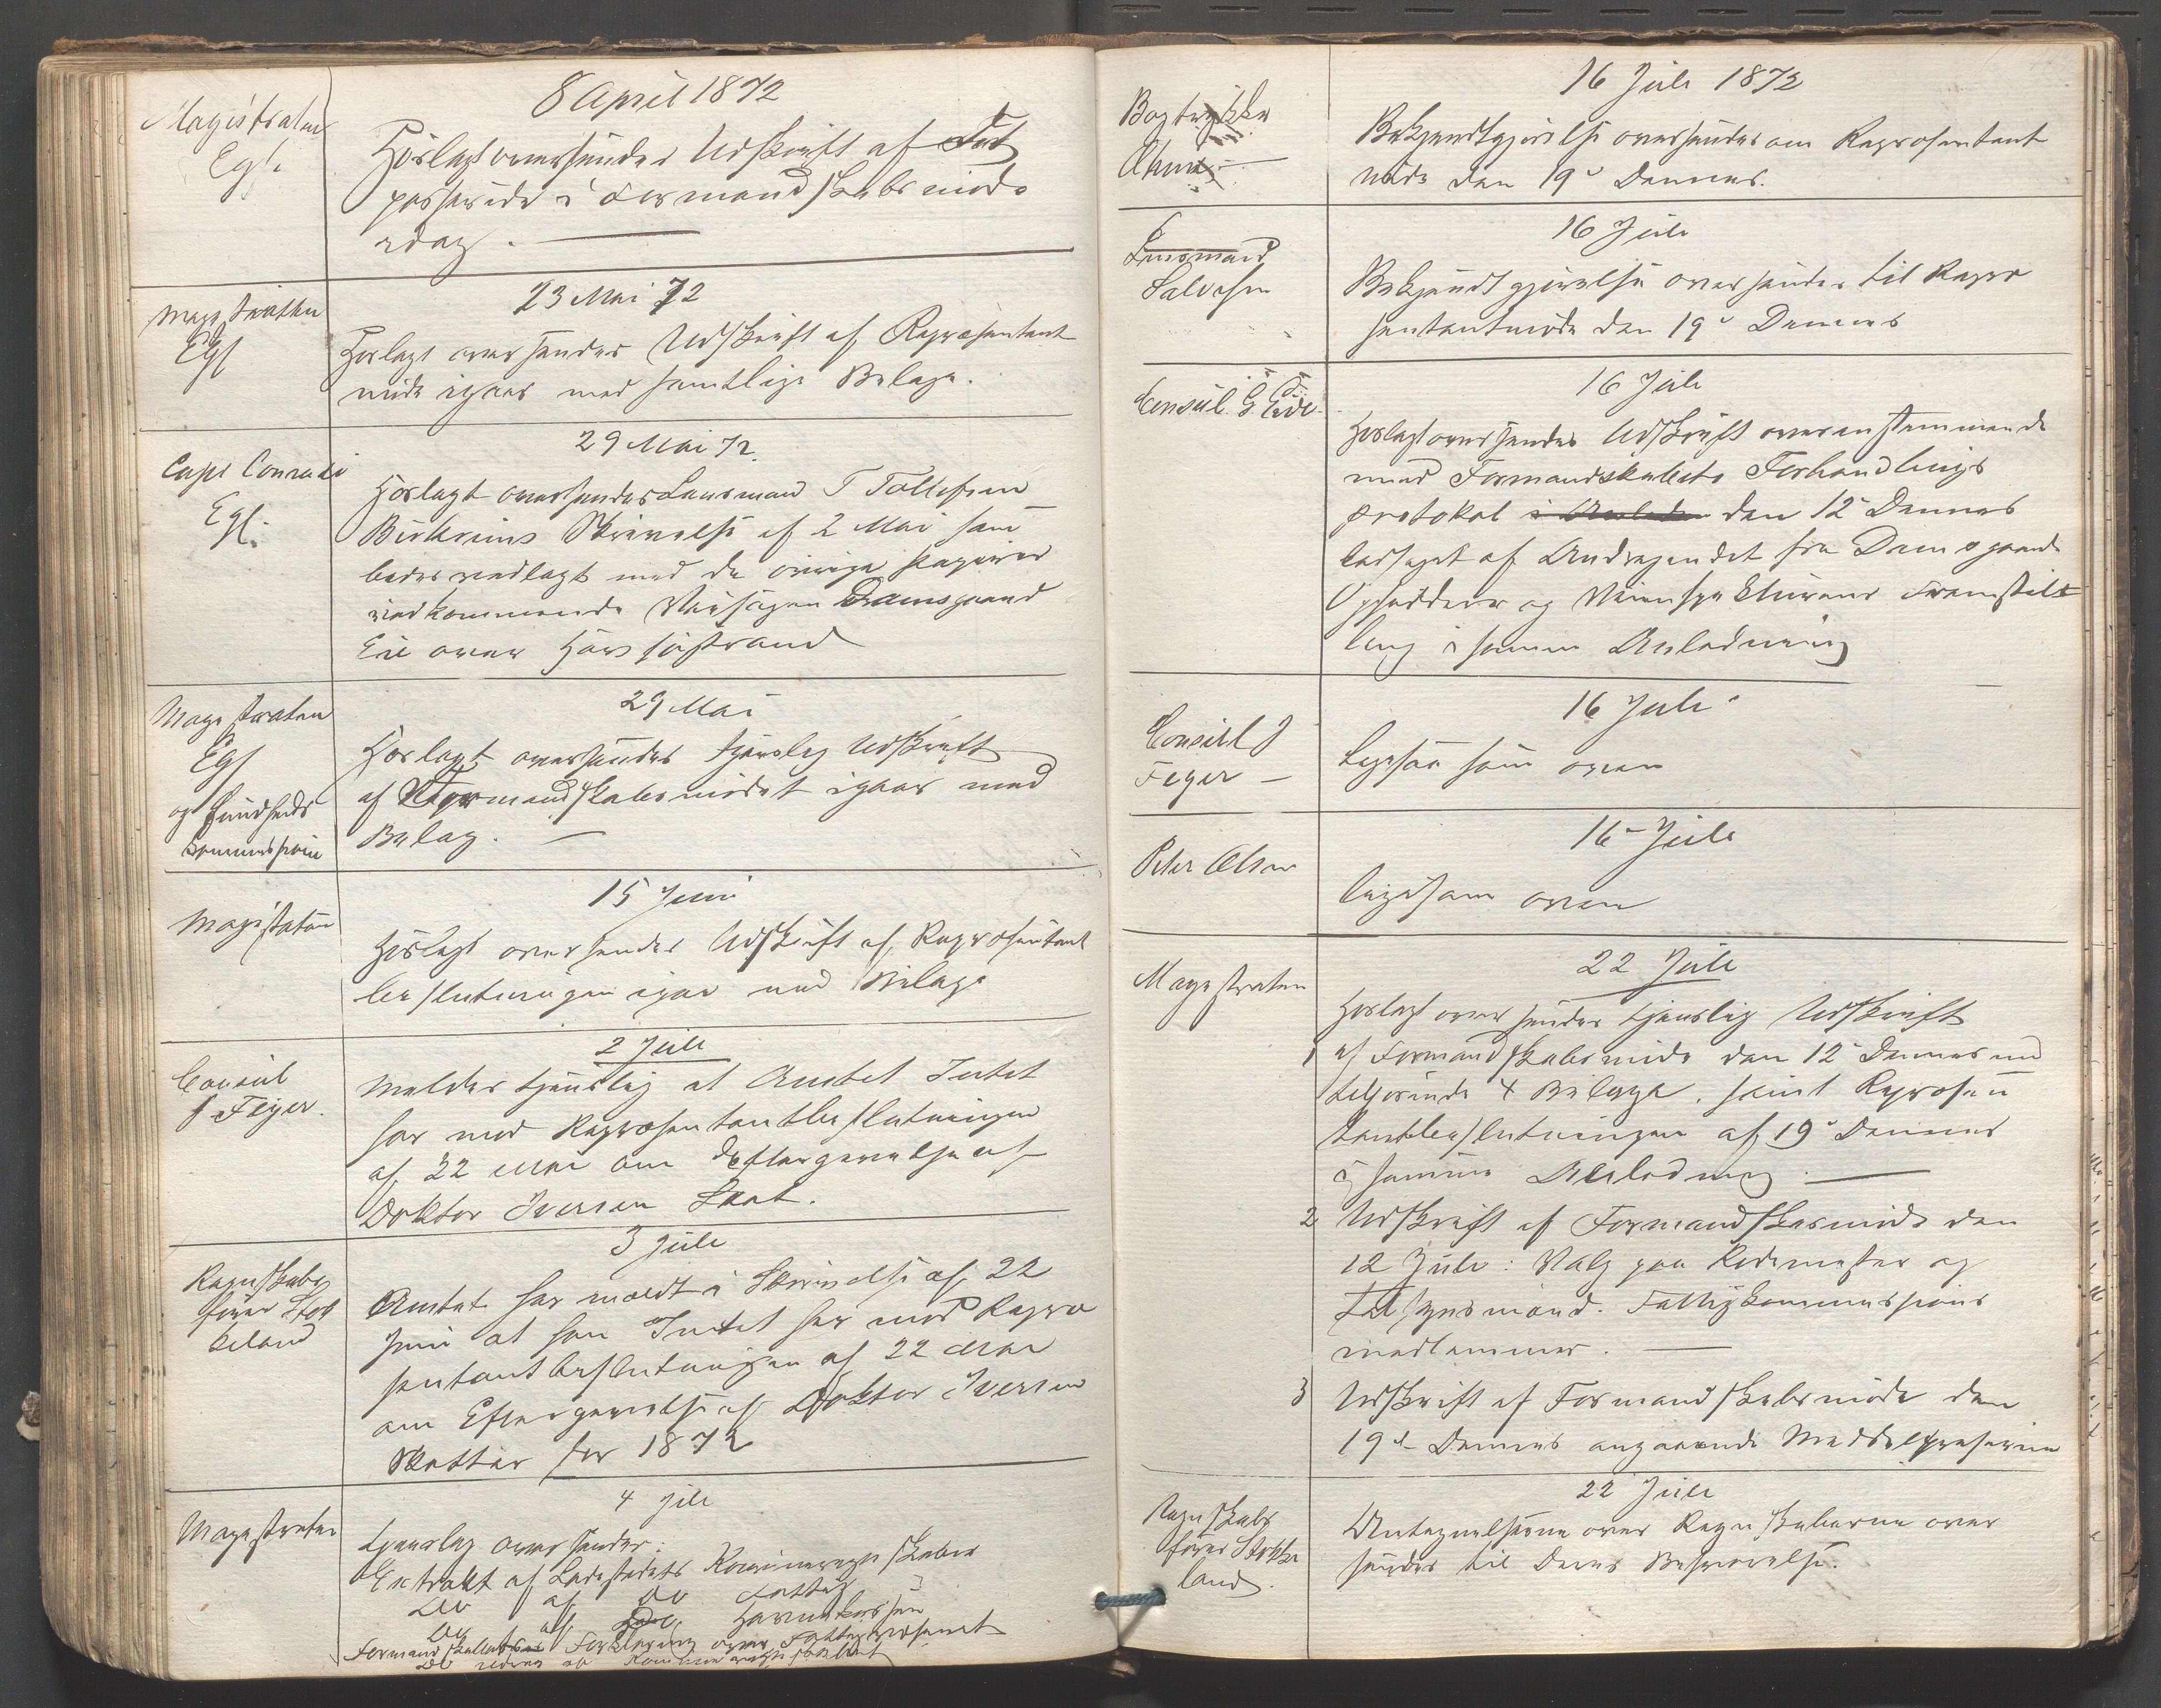 Magistraten
Egs.
8 April 1872
Hoslagt oversendes Udskrift af Det
passerede i Formandskabsmøde
idag.
Magistraten
Egs
23 Mai 72
Hoslagt oversendes Udskrift af Repræsentant
møde igaar med samtlige Bilage.
Capt Conradi
Egs.
29 Mai 72.
Hoslagt oversendes Lensmand T Tollefsen
Birkrims Skrivelse af 2 Mai som
bedes vedlagt med de øvrige papirer
vedkommende Veisagen Damsgaard
Eie over
Magistraten
Egs
og Sundheds
Commissionen
29 Mai
Hoslagt oversendes tjenslig Udskrift
af Formandskabsmødet igaar med
Bilag.
Magistraten
15 Juni
Hoslagt oversendes Udskrift af Repræsentant
beslutningen igaar med Bilage
Consul
J Feyer.
2 Juli
Meldes tjenslig at Amtet Intet
har mod Repræsentantbeslutningen
af 22 Mai om Eftergivelse af
Doktor Iversen Skat.
Regnskabs
fører Stok
keland
3 Juli
Amtet har meldt i Skrivelse af 22
Juni at han Intet har mod Repræ
sentantbeslutningen af 22 Mai
om Eftergivelse af Doktor Iversen
Skatter for 1872
Magistraten
4 Juli
Tjenslig oversendes:
Extrakt af Ladestedets Kommuneregnskaber
Do af Do Fattig
Do af Do Havnekassen
Formandskabets Forklaring over Fattigvæsenet
Do Kommuneregnskabet
Bogtrykker
16 Juli 1872
Bekjendtgjørelse oversendes om Repræsentant
møde den 19de Dennes.
Lensmand
Salvesen
16 Juli
Bekjendtgjørelse oversendes til Repræ
sentantmøde den 19de Dennes
Consul G Eide
16 Juli
Hoslagt oversendes Udskrift overenstemmende
med Formandskabets Forhandlings
protokol i Anledn den 12te Dennes
ledsaget af Andragendet fra Damsgaards
Opsiddere og Veiinspekteurens Fremstil
ling i samme Anledning
Consul J
Feyer
16 Juli
Ligesaa som oven
Peter Olsen
16 Juli
ligesom oven
Magistraten
22 Juli
Hoslagt oversendes tjenslig Udskrift
1 af Formandskabsmøde den 12te Dennes med
tilhørende 4 Bilage. samt Repræsen
tantbeslutningen af 19de Dennes
i samme Anledning.
2 Udskrift af Formandskabsmøde den
12 Juli: Valg paa Rodemester og
Tilsynsmænd. Fattigkommissions
medlemmer.
3 Udskrift af Formandskabsmøde den
19de Dennes angaaende Middelskoleexamen
Regnskabs
fører Stokke
land.
22 Juli
Antegnelserne over Regnskaberne over
sendes til Deres Besvarelse.